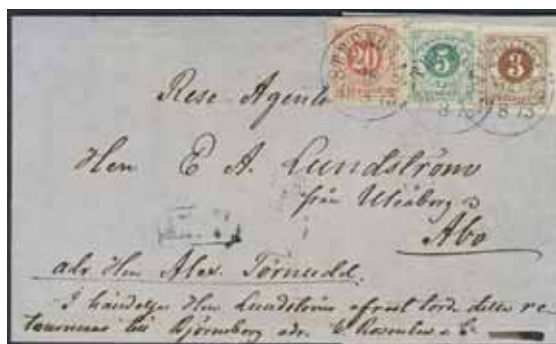 20 5 3
Rese Agenten
Herr E A. Lundström
från Uleåborg
Åbo
adr. Herr Alex. Törnudd.
I händelse Herr Lundström afrest torde detta re-
tourneras till Björneborg adr.